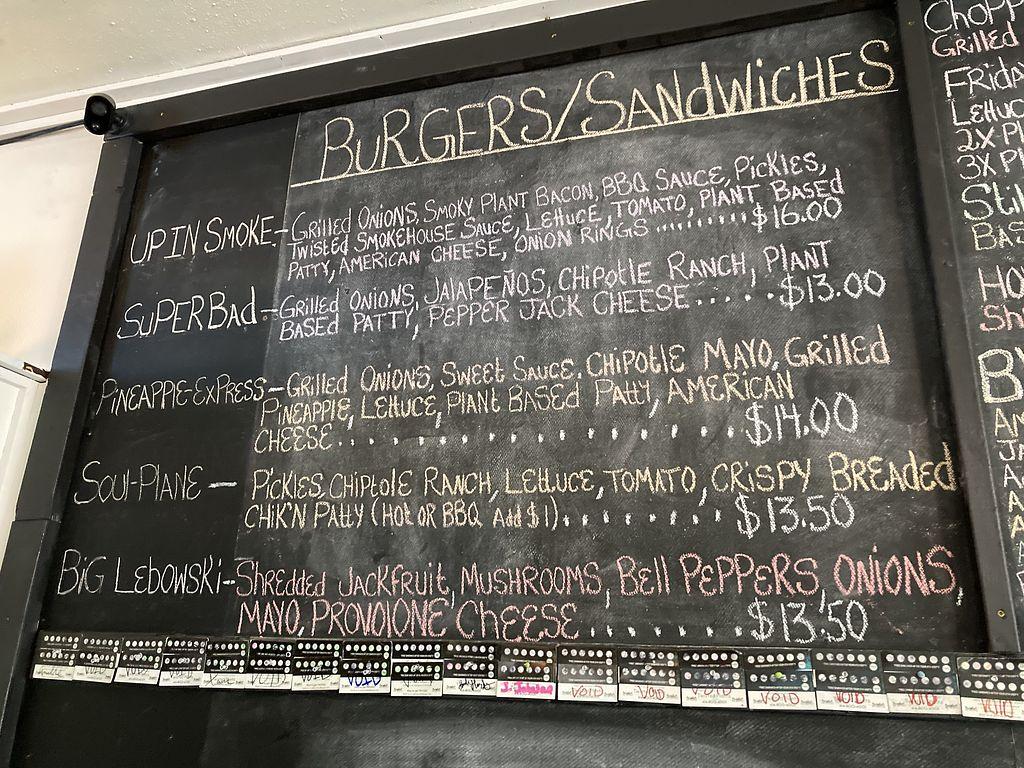 BURGERS/SANDWICHES
UP IN SMOKE - GRILLED ONIONS, SMOKY PLANT BACON, BBQ SAUCE, PICKLES,
TWISTED SMOKEHOUSE SAUCE, LETTUCE, TOMATO, PLANT BASED
PATTY, AMERICAN CHEESE, ONION RINGS ......... $16.00
SUPERBAD - GRILLED ONIONS, JALAPEÑOS, CHIPOTLE RANCH, PLANT
BASED PATTY, PEPPER JACK CHEESE ..... $13.00
PINEAPPLE-EXPRESS - GRILLED ONIONS, SWEET SAUCE, CHIPOTLE MAYO, GRILLED
PINEAPPLE, LETTUCE, PLANT BASED PATTY, AMERICAN
CHEESE .............. $14.00
SOUL-PLANE - PICKLES, CHIPTOLE RANCH, LETTUCE, TOMATO, CRISPY BREADED
CHIK'N PATTY (HOT OR BBQ Add $1) ........ $13.50
BIG LEBOWSKI - SHREDDED JACKFRUIT, MUSHROOMS, BELL PEPPERS, ONIONS,
MAYO, PROVOLONE CHEESE ....... $13.50
VOID
VOID
VOID
VOID
VOID
VOID
VOID
VOID
VOID
GRILLED
LETTUC
2X PL
3X PL